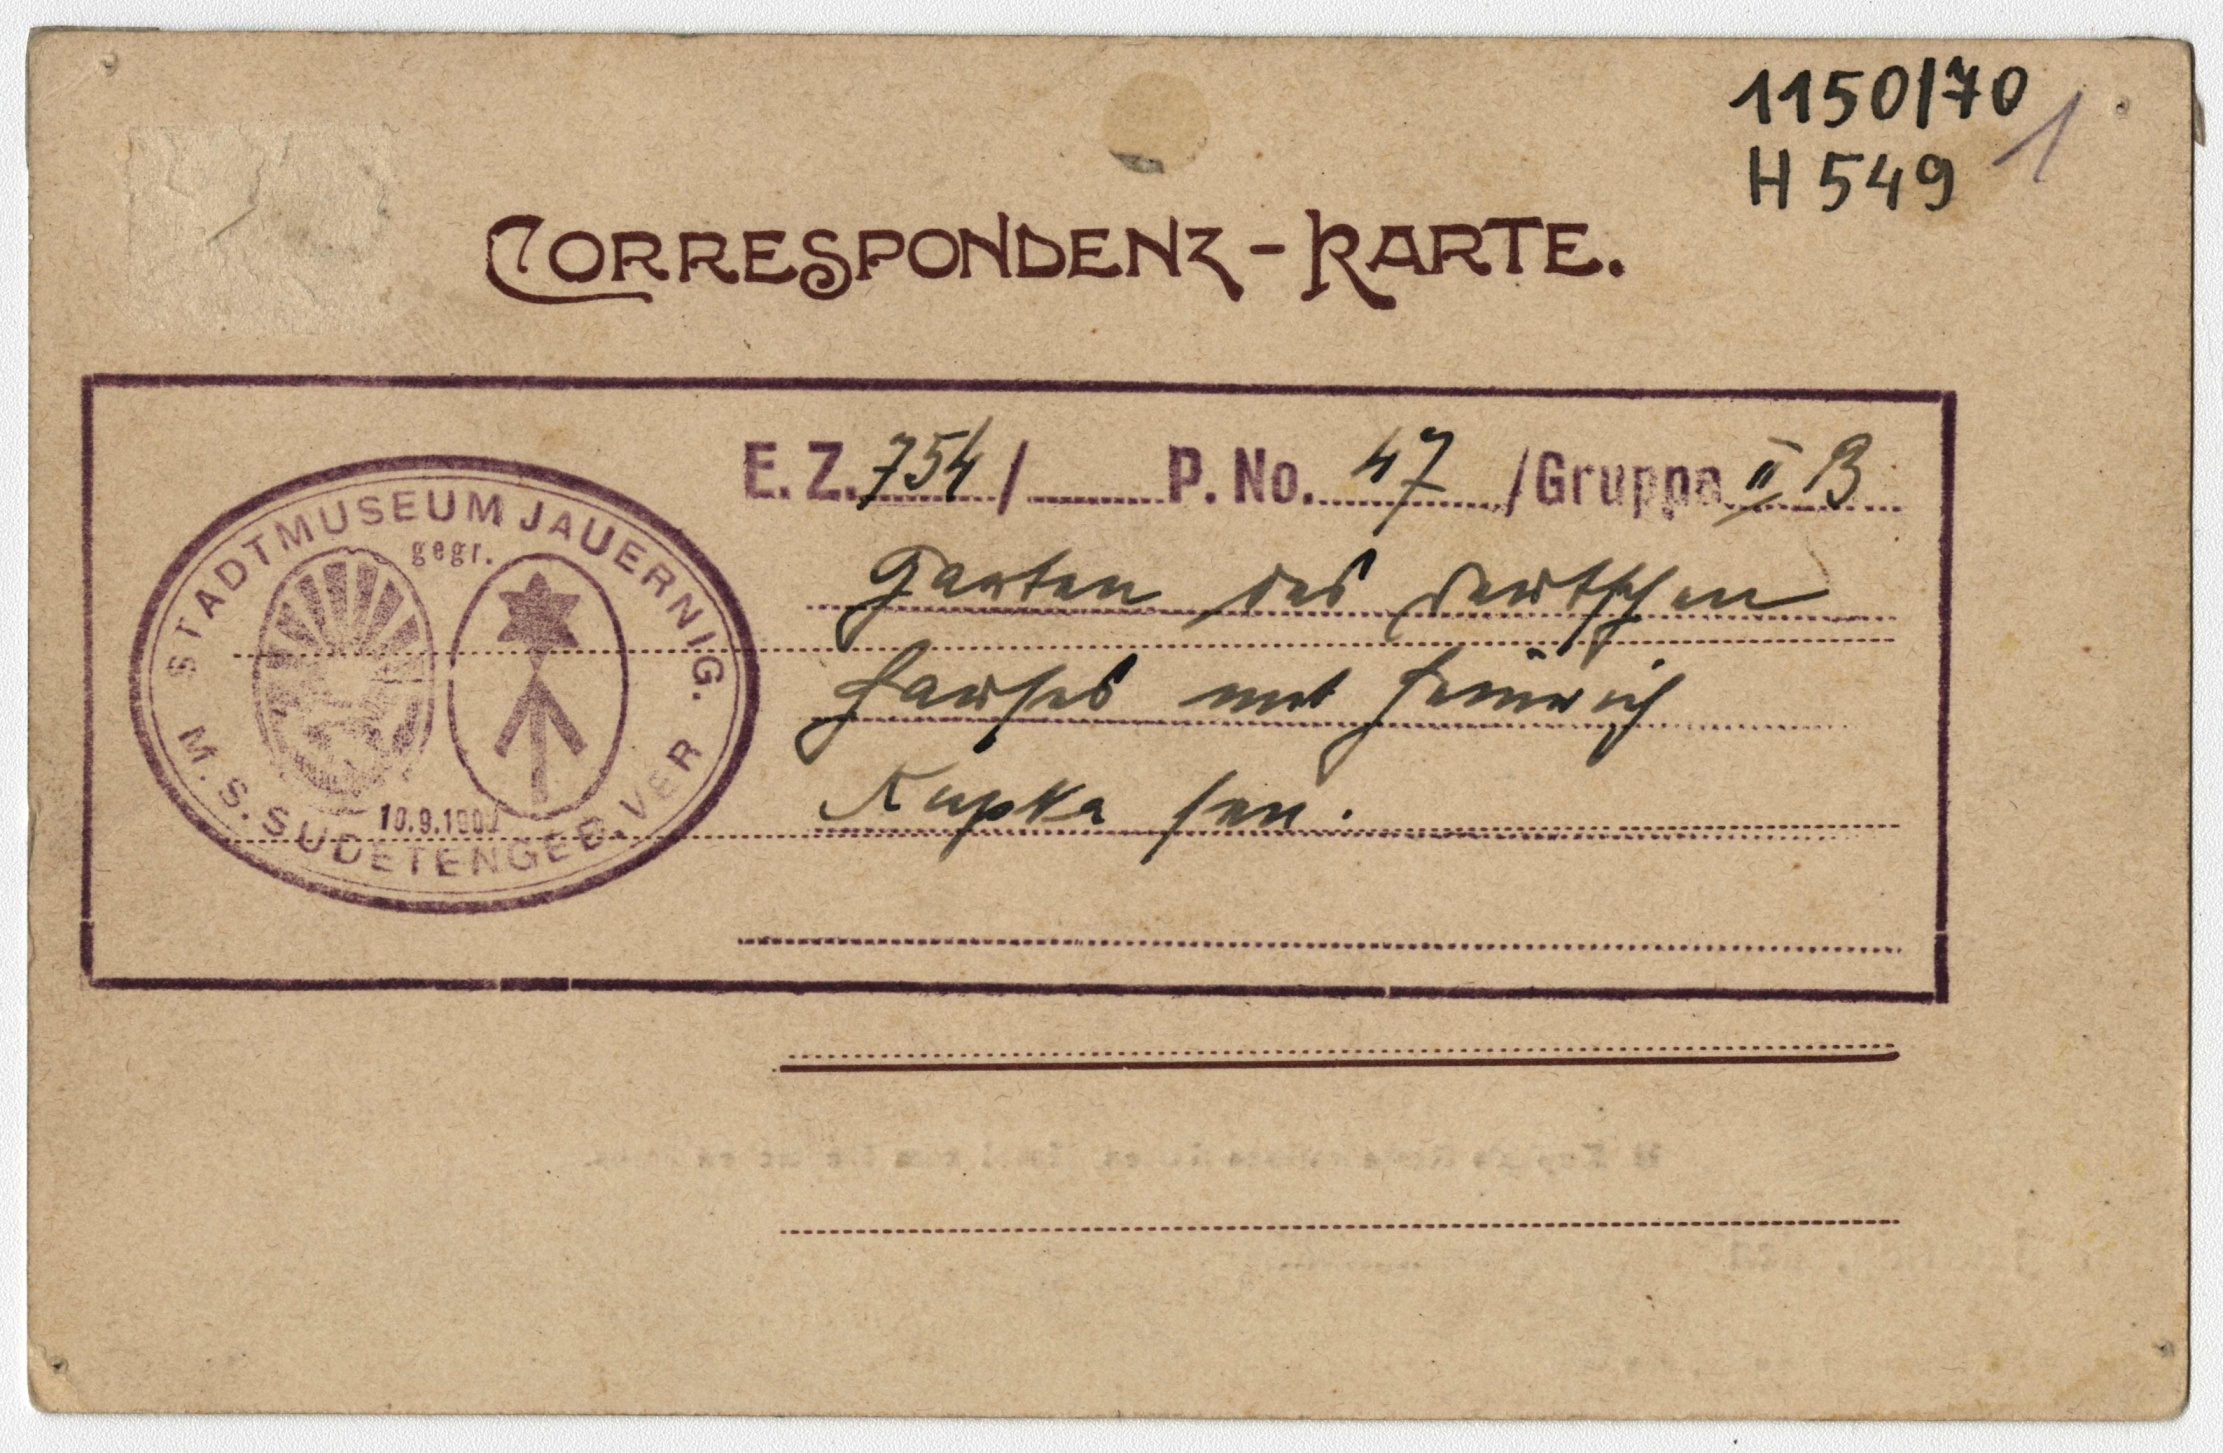 1150/70
1
H 549
CORRESPONDENZ-KARTE.
E. Z. 754 / P. No. 47 / Gruppe II B
STADTMUSEUM JAUERNIG.
gegr.
10.9.190
M. S. SUDETENGEB. VER
Garten des deutschen
Hauses mit Heinrich
Kupka sen.